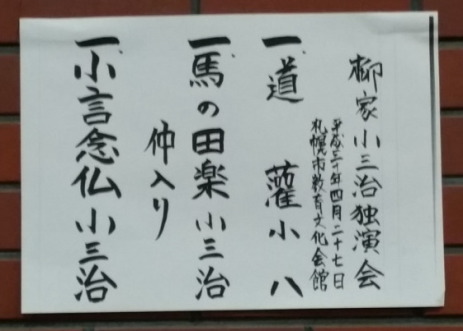 柳家小三治独演会
平成三十年四月二十七日
札幌市教育文化会館
一、道灌 小八
一、馬の田楽 小三治
仲入り
一、小言念仏 小三治